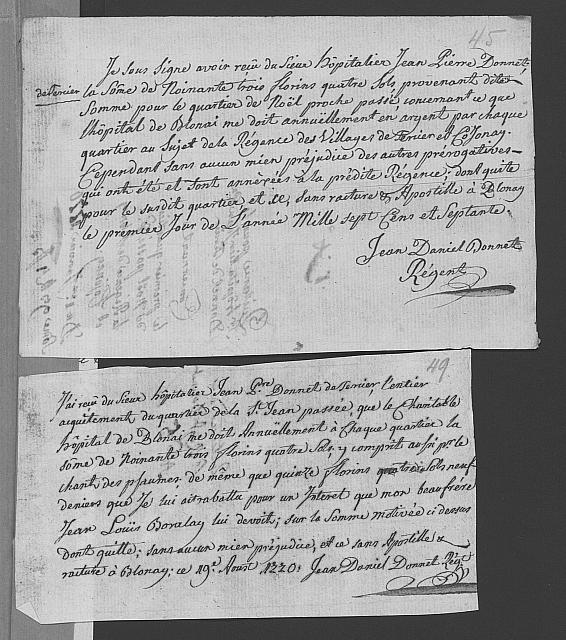 45
Je sous signé avoir reçû du Sieur hôpitalier Jean Pierre Donnet
de Tercier la Sôme de Noinante trois florins quatre Sols, provenant dite
Somme pour le quartier de Noël proche passé, concernant ce que
l'hôpital de Blonai me doit annuellement en argent par chaque
quartier au Sujet de la Régence des Villages de Tercier et Cojonay.
Cependant sans aucun mien préjudice des autres prérogatives
qui ont été et sont annéxées à la prédite Régence; dont quite
pour le susdit quartier et ce, sans rature & Apostille à Blonay
le prémier Jour de L'année Mille sept Cens et Septante.
Jean Daniel Donnet
Régent
49
J'ai reçû du Sieur hôpitalier Jean P.rre Donnet de Tercier l'entier
aquitement du quartier de la S.t Jean passée, que le Charitable
hôpital de Blonai me doit Annuellement à Chaque quartier la
some de Noinante trois florins quatre Sols, y comprit aussi pr. le
chant des psaumes, de même que quinze florins quatre sols neuf
deniers que Je lui ai rabattu pour un Interet que mon beaufrère
Jean Louïs Boralay lui devoit; sur la Somme motivée ci dessus
Dont quitte; sans aucun mien préjudice, et ce sans Apostille &
rature à Blonay; ce 19.e Aoust 1770. Jean Daniel Donnet Rég.t